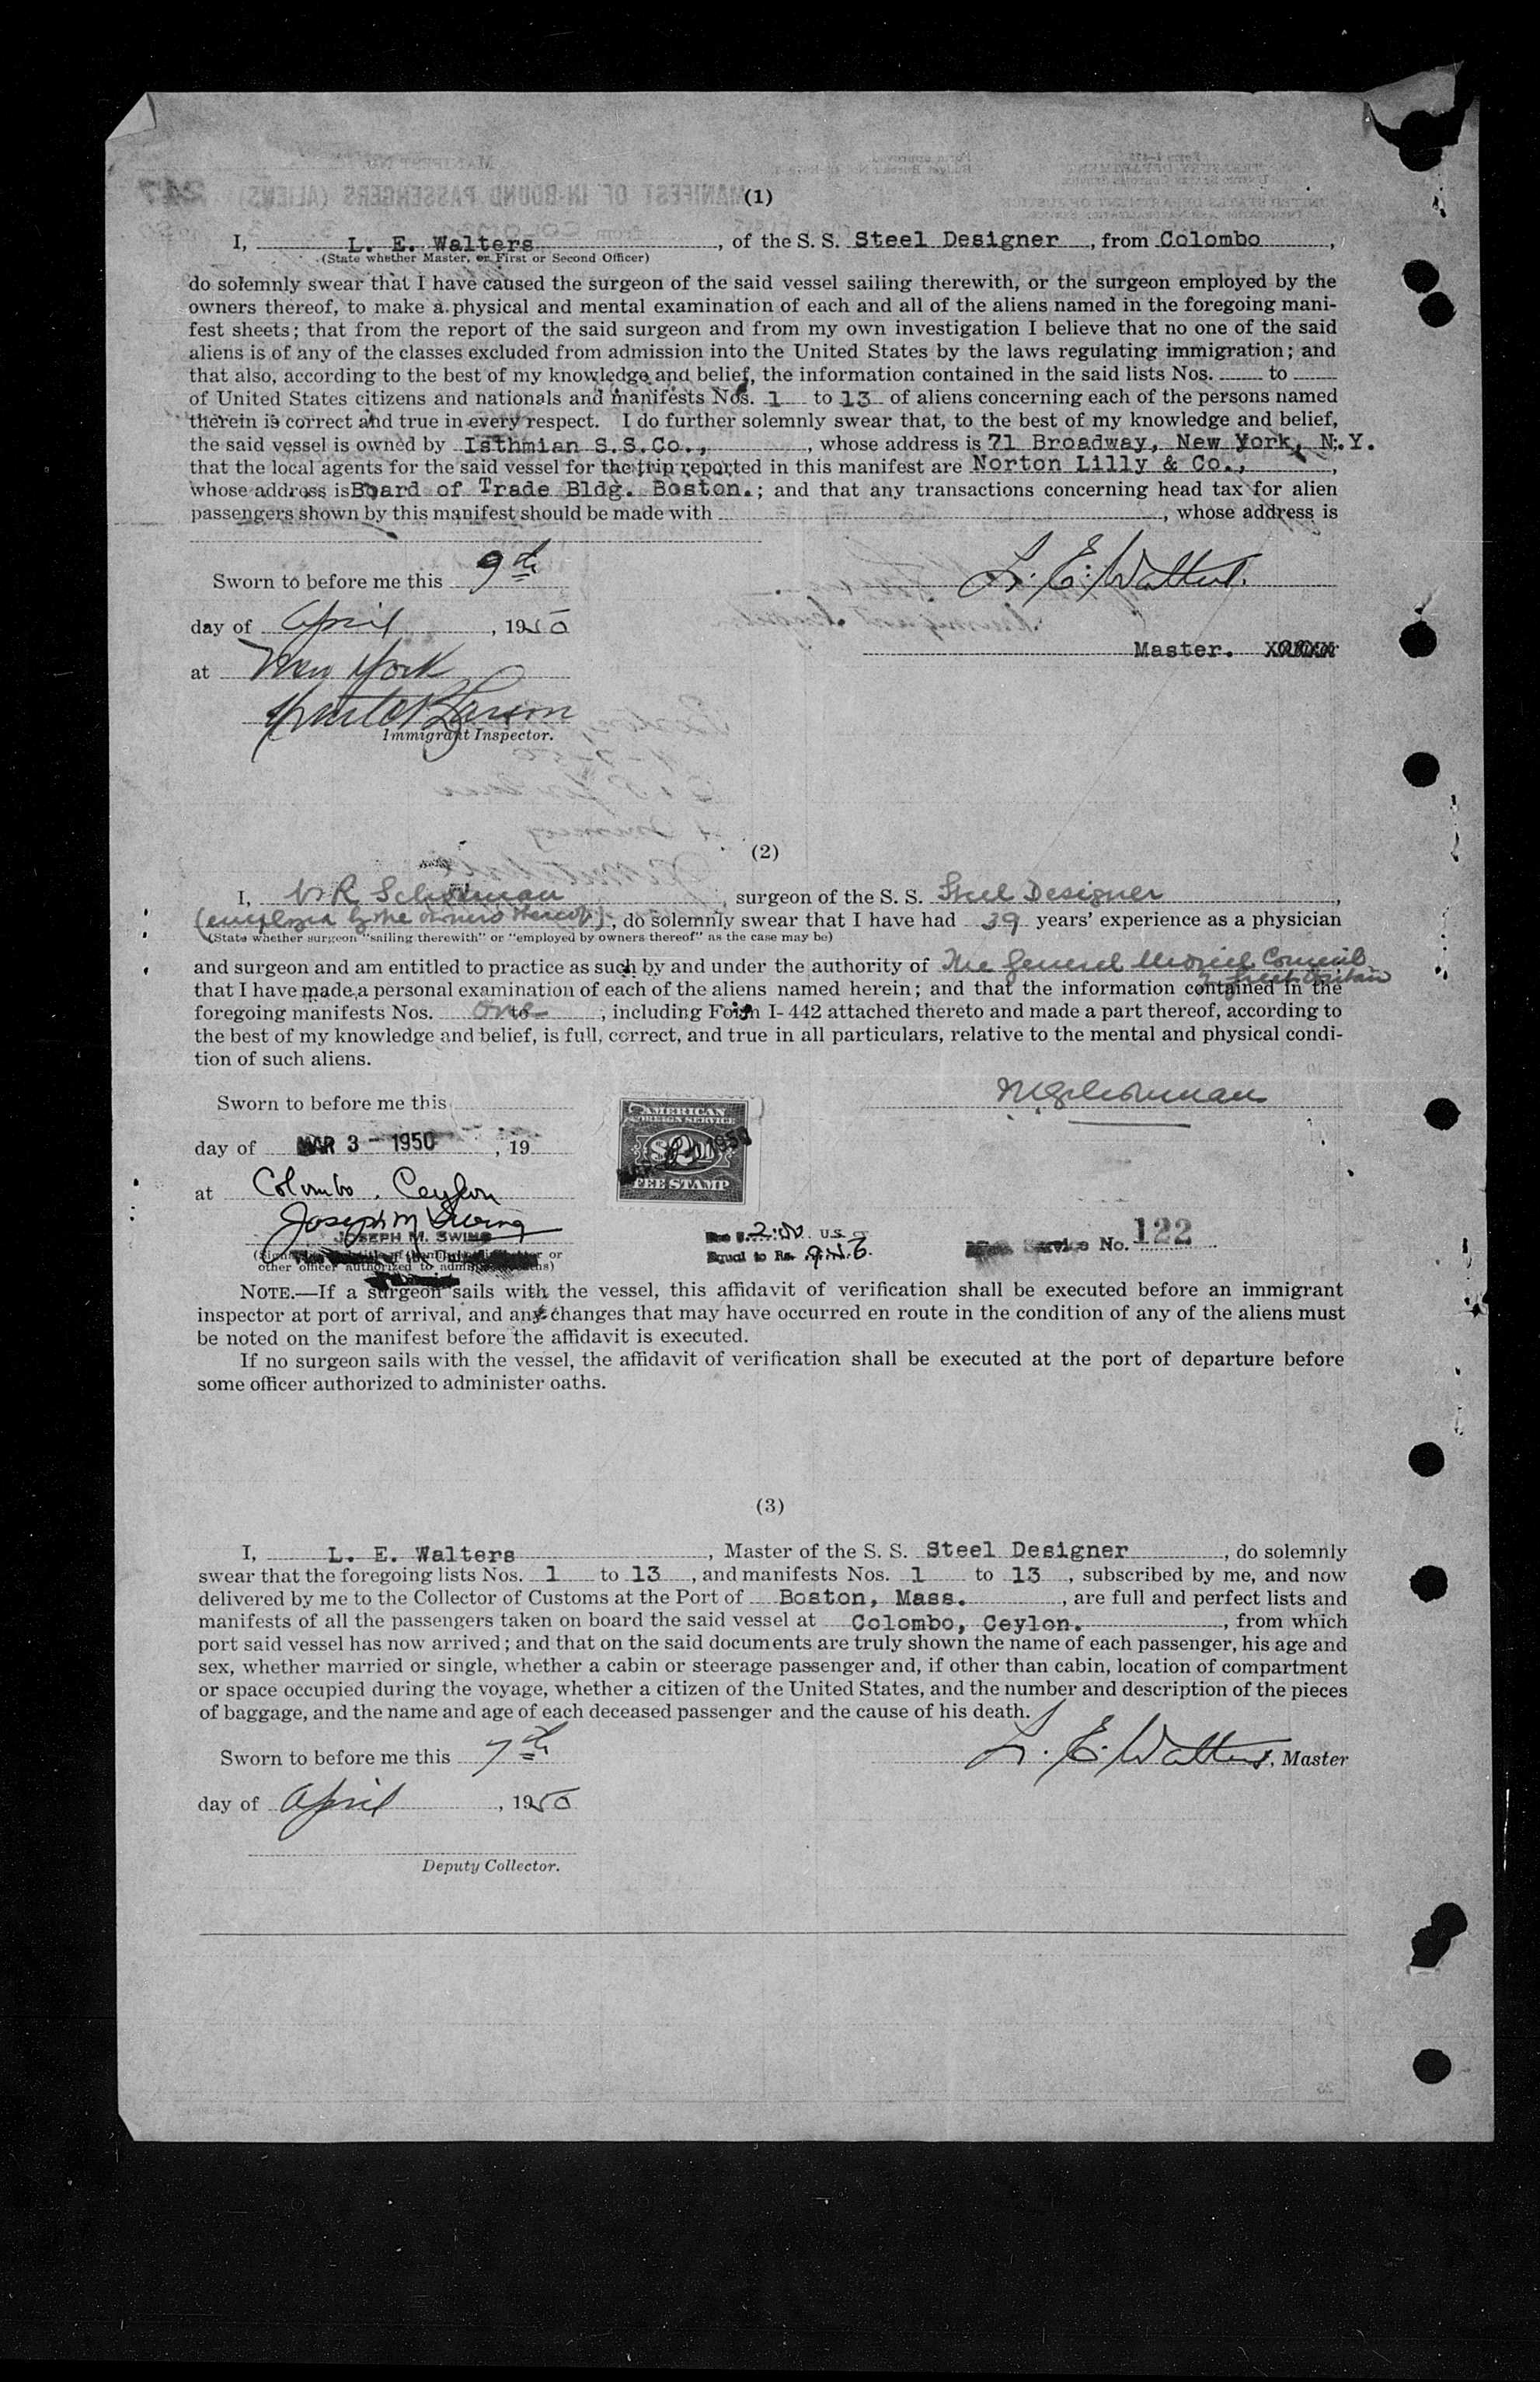 (1)
I, L. E. Walters, of the S. S. Steel Designer, from Colombo,
(State whether Master, or First or Second Officer)
do solemnly swear that I have caused the surgeon of the said vessel sailing therewith, or the surgeon employed by the
owners thereof, to make a physical and mental examination of each and all of the aliens named in the foregoing mani-
fest sheets; that from the report of the said surgeon and from my own investigation I believe that no one of the said
aliens is of any of the classes excluded from admission into the United States by the laws regulating immigration; and
that also, according to the best of my knowledge and belief, the information contained in the said lists Nos. to
of United States citizens and nationals and manifests Nos. 1 to 13 of aliens concerning each of the persons named
therein is correct and true in every respect. I do further solemnly swear that, to the best of my knowledge and belief,
the said vessel is owned by Isthmian S.S.Co., , whose address is 71 Broadway, New York, N.Y.
that the local agents for the said vessel for the trip reported in this manifest are Norton Lilly & Co.,
whose address is Board of Trade Bldg. Boston.; and that any transactions concerning head tax for alien
passengers shown by this manifest should be made with , whose address is
Sworn to before me this 9th
L. E. Walters
day of April, 1950
Master.
at New York
Immigrant Inspector.
(2)
I, Schokman, surgeon of the S. S. Steel Designer,
(employed by the owners thereof), do solemnly swear that I have had 39 years' experience as a physician
(State whether surgeon "sailing therewith" or "employed by owners thereof" as the case may be)
and surgeon and am entitled to practice as such by and under the authority of The General Medical Council
of Great Britain
that I have made a personal examination of each of the aliens named herein; and that the information contained in the
foregoing manifests Nos. one, including Form I-442 attached thereto and made a part thereof, according to
the best of my knowledge and belief, is full, correct, and true in all particulars, relative to the mental and physical condi-
tion of such aliens.
Sworn to before me this
AMERICAN
FOREIGN SERVICE
FEE STAMP
day of MAR 3 - 1950, 19
at Colombo, Ceylon
Joseph M Swing
JOSEPH M. SWING
2.00 U.S.
Equal to Rs.
Service No. 122
other officer authorized to administer oaths)
NOTE.—If a surgeon sails with the vessel, this affidavit of verification shall be executed before an immigrant
inspector at port of arrival, and any changes that may have occurred en route in the condition of any of the aliens must
be noted on the manifest before the affidavit is executed.
If no surgeon sails with the vessel, the affidavit of verification shall be executed at the port of departure before
some officer authorized to administer oaths.
(3)
I, L. E. Walters, Master of the S. S. Steel Designer, do solemnly
swear that the foregoing lists Nos. 1 to 13, and manifests Nos. 1 to 13, subscribed by me, and now
delivered by me to the Collector of Customs at the Port of Boston, Mass., are full and perfect lists and
manifests of all the passengers taken on board the said vessel at Colombo, Ceylon., from which
port said vessel has now arrived; and that on the said documents are truly shown the name of each passenger, his age and
sex, whether married or single, whether a cabin or steerage passenger and, if other than cabin, location of compartment
or space occupied during the voyage, whether a citizen of the United States, and the number and description of the pieces
of baggage, and the name and age of each deceased passenger and the cause of his death.
Sworn to before me this 7th
L. E. Walters, Master
day of April, 1950
Deputy Collector.